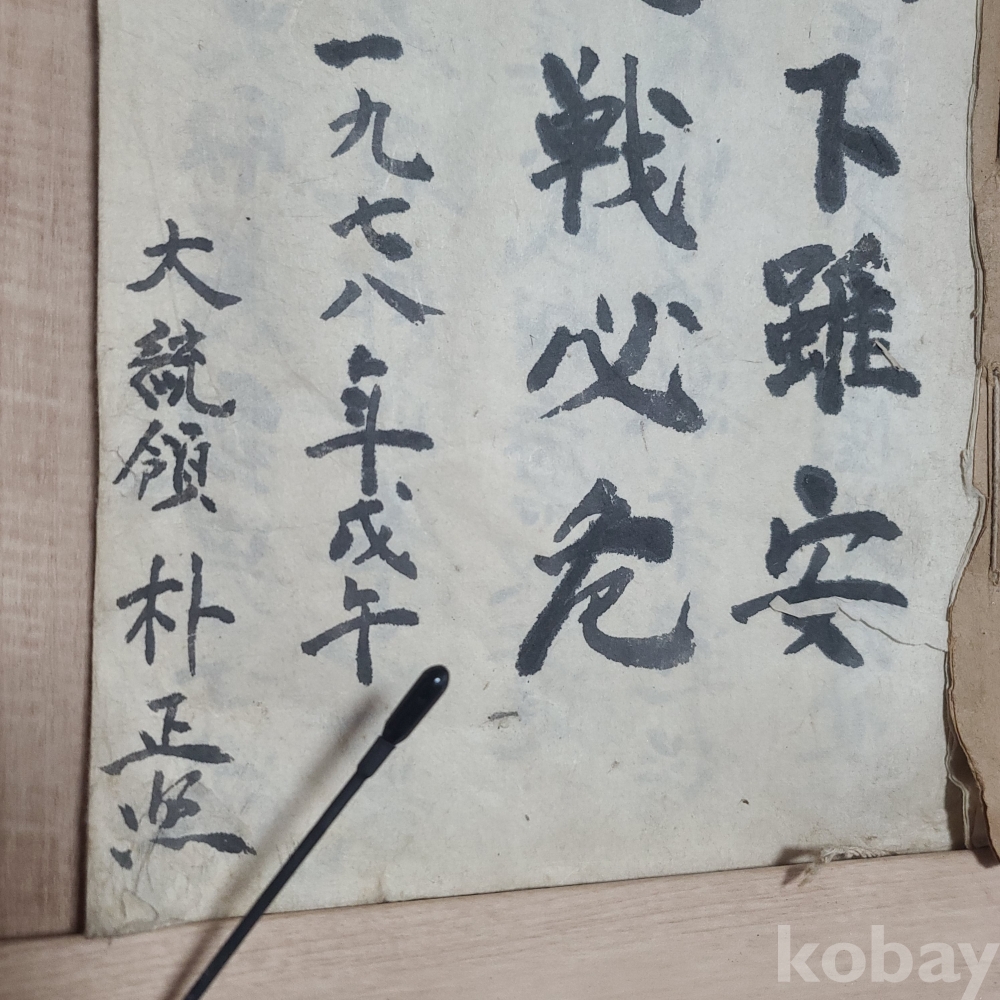 下雖安
戦必危
一九七八年戊午
大統領 朴正熙
kobay